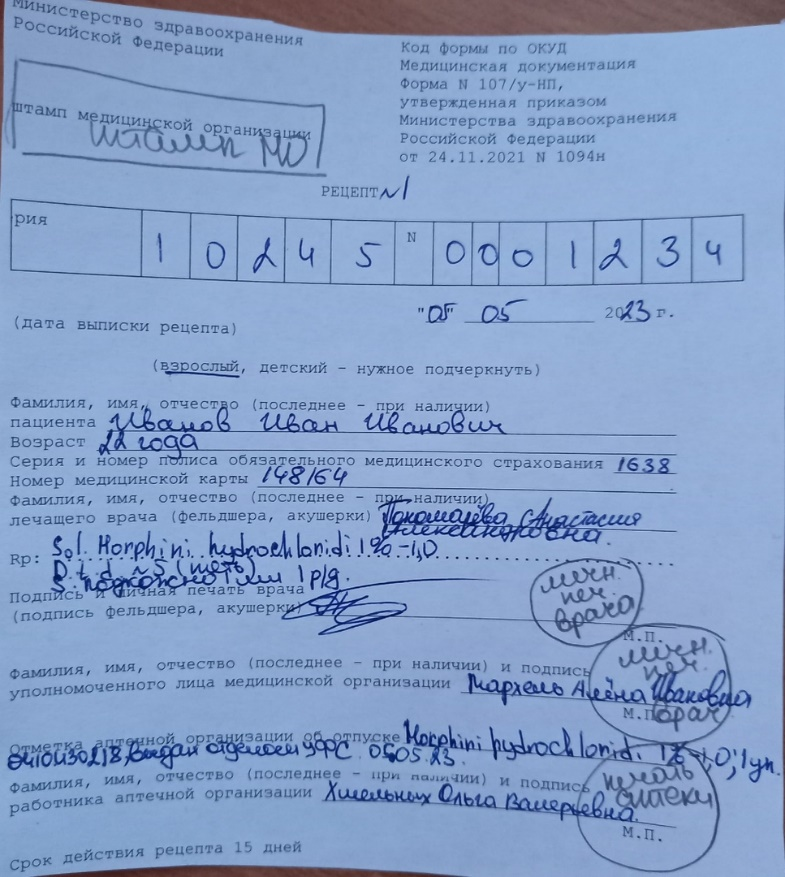 Министерство здравоохранения
Российской Федерации
штамп медицинской организации
штамп МО
Код формы по ОКУД
Медицинская документация
Форма N 107/у-НП,
утвержденная приказом
Министерства здравоохранения
Российской Федерации
от 24.11.2021 N 1094н
РЕЦЕПТ N1
рия 1 0 2 4 5 N 0 0 0 1 2 3 4
"05" 05 2023 г.
(дата выписки рецепта)
(взрослый, детский - нужное подчеркнуть)
Фамилия, имя, отчество (последнее - при наличии)
пациента Иванов Иван Иванович
Возраст 22 года
Серия и номер полиса обязательного медицинского страхования 1638
Номер медицинской карты 148/64
Фамилия, имя, отчество (последнее - при наличии)
лечащего врача (фельдшера, акушерки) Пономарёва Анастасия
Александровна.
Rp: Sol. Morphini hydrochloridi 1% - 1,0
D.t.d. N 5
S. подкожно 1 мл 1 р/д.
Подпись и личная печать врача
(подпись фельдшера, акушерки)
личн.
печ.
врача
М.П.
Фамилия, имя, отчество (последнее - при наличии) и подпись
уполномоченного лица медицинской организации Мархель Алёна Ивановна
личн.
печ.
врач
М.П.
Отметка аптечной организации об отпуске Morphini hydrochloridi 1% - 1,0; 1 уп.
Выдан отделом УФС 05.05.23.
Фамилия, имя, отчество (последнее - при наличии) и подпись
работника аптечной организации Хмельных Ольга Валерьевна.
печать
аптеки
М.П.
Срок действия рецепта 15 дней